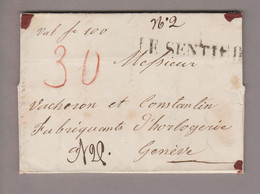 Val fr 100
N° 2
LE SENTIER
30
Messieur
Vacheron et Constantin
Fabriquants d'horlogerie
Genève